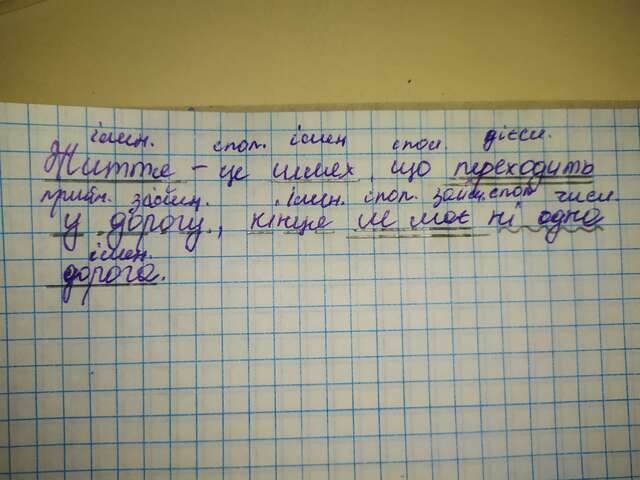 імен. спол. імен спол. дієсл.
Життя – це шлях, що переходить
прийм. займен. імен. спол. займ. спол числ.
у дорогу, кінця не має ні одна
імен.
дорога.